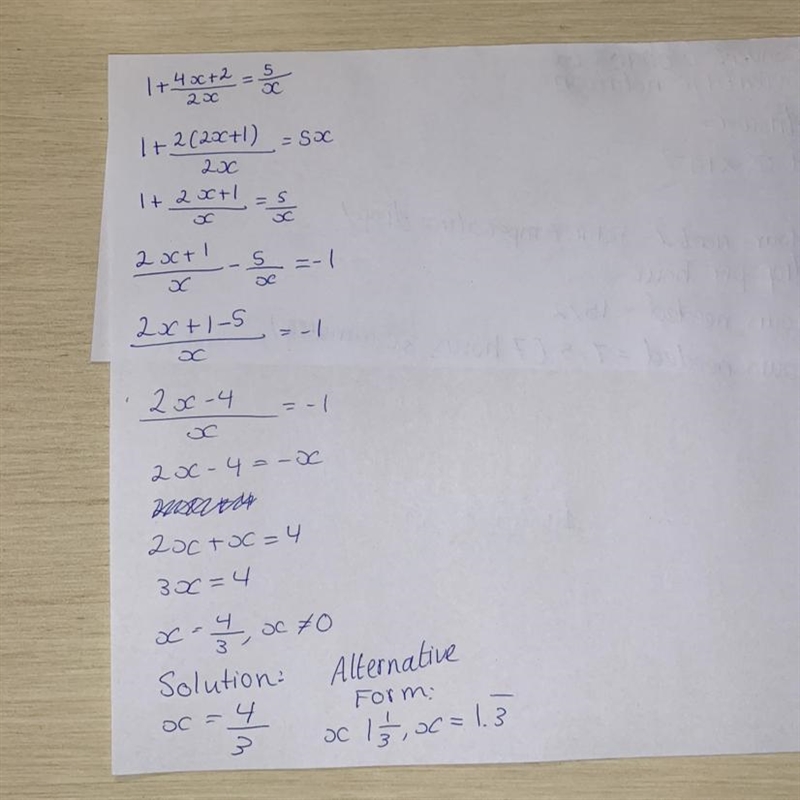 1 + (4x+2)/(2x) = 5/x
1 + (2(2x+1))/(2x) = 5x
1 + (2x+1)/x = 5/x
(2x+1)/x - 5/x = -1
(2x+1-5)/x = -1
(2x-4)/x = -1
2x-4 = -x
2x+x = 4
3x = 4
x = 4/3, x ≠ 0
Solution:
x = 4/3
Alternative
Form:
x 1 1/3, x = 1.3̅